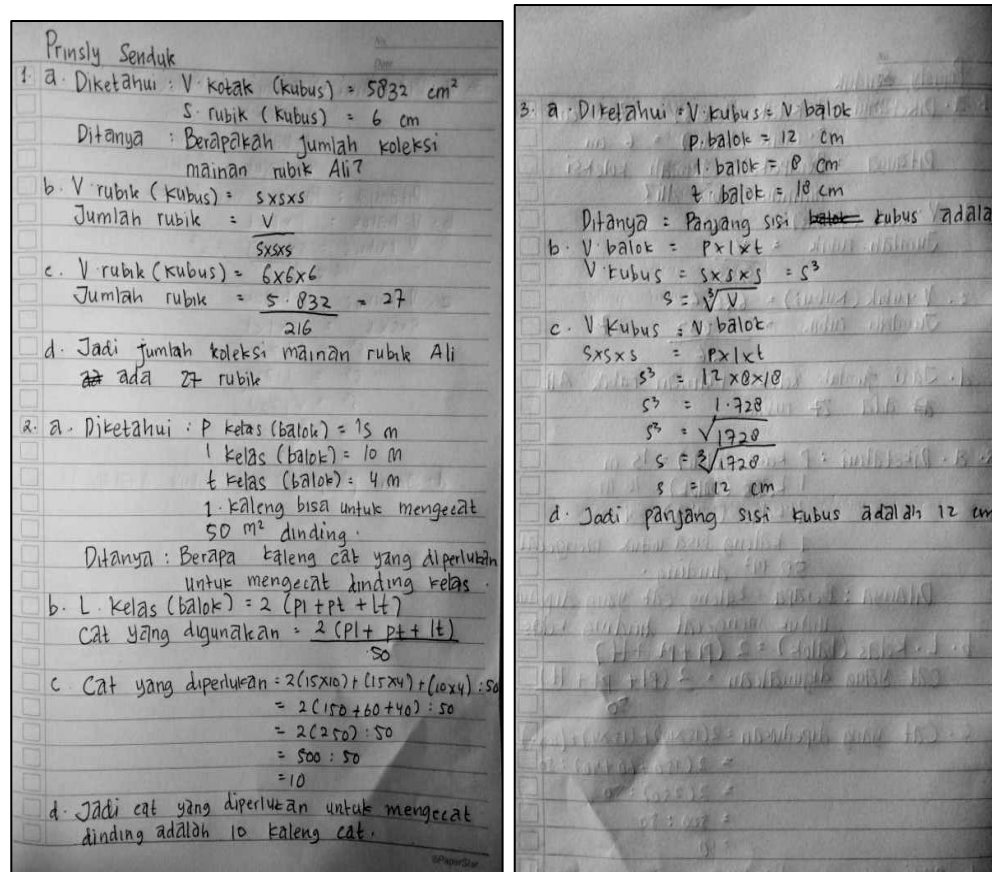 Prinsly Senduk
No
Date
1. a. Diketahui : V. kotak (kubus) = 5832 cm²
S. rubik (kubus) = 6 cm
Ditanya : Berapakah jumlah koleksi
mainan rubik Ali?
b. V. rubik (kubus) = s×s×s
Jumlah rubik = V
s×s×s
c. V. rubik (kubus) = 6×6×6
Jumlah rubik = 5.832 = 27
216
d. Jadi jumlah koleksi mainan rubik Ali
ada 27 rubik
2. a. Diketahui : P kelas (balok) = 15 m
l kelas (balok) = 10 m
t kelas (balok) = 4 m
1. kaleng bisa untuk mengecat
50 m² dinding.
Ditanya : Berapa kaleng cat yang diperlukan
untuk mengecat dinding kelas.
b. L. kelas (balok) = 2 (pl + pt + lt)
Cat yang digunakan = 2 (pl + pt + lt)
50
c. Cat yang diperlukan = 2(15×10) + (15×4) + (10×4) : 50
= 2(150+60+40) : 50
= 2(250) : 50
= 500 : 50
= 10
d. Jadi cat yang diperlukan untuk mengecat
dinding adalah 10 kaleng cat.
PaperStar
3. a. Diketahui : V. kubus = V. balok
p. balok = 12 cm
l. balok = 8 cm
t. balok = 18 cm
Ditanya : Panjang sisi balok kubus adala
b. V. balok = p×l×t
V. kubus = s×s×s = s³
s = ∛V
c. V. kubus = V. balok
s×s×s = p×l×t
s³ = 12×8×18
s³ = 1.728
s³ = √1728
s = ∛1728
s = 12 cm
d. Jadi panjang sisi kubus adalah 12 cm